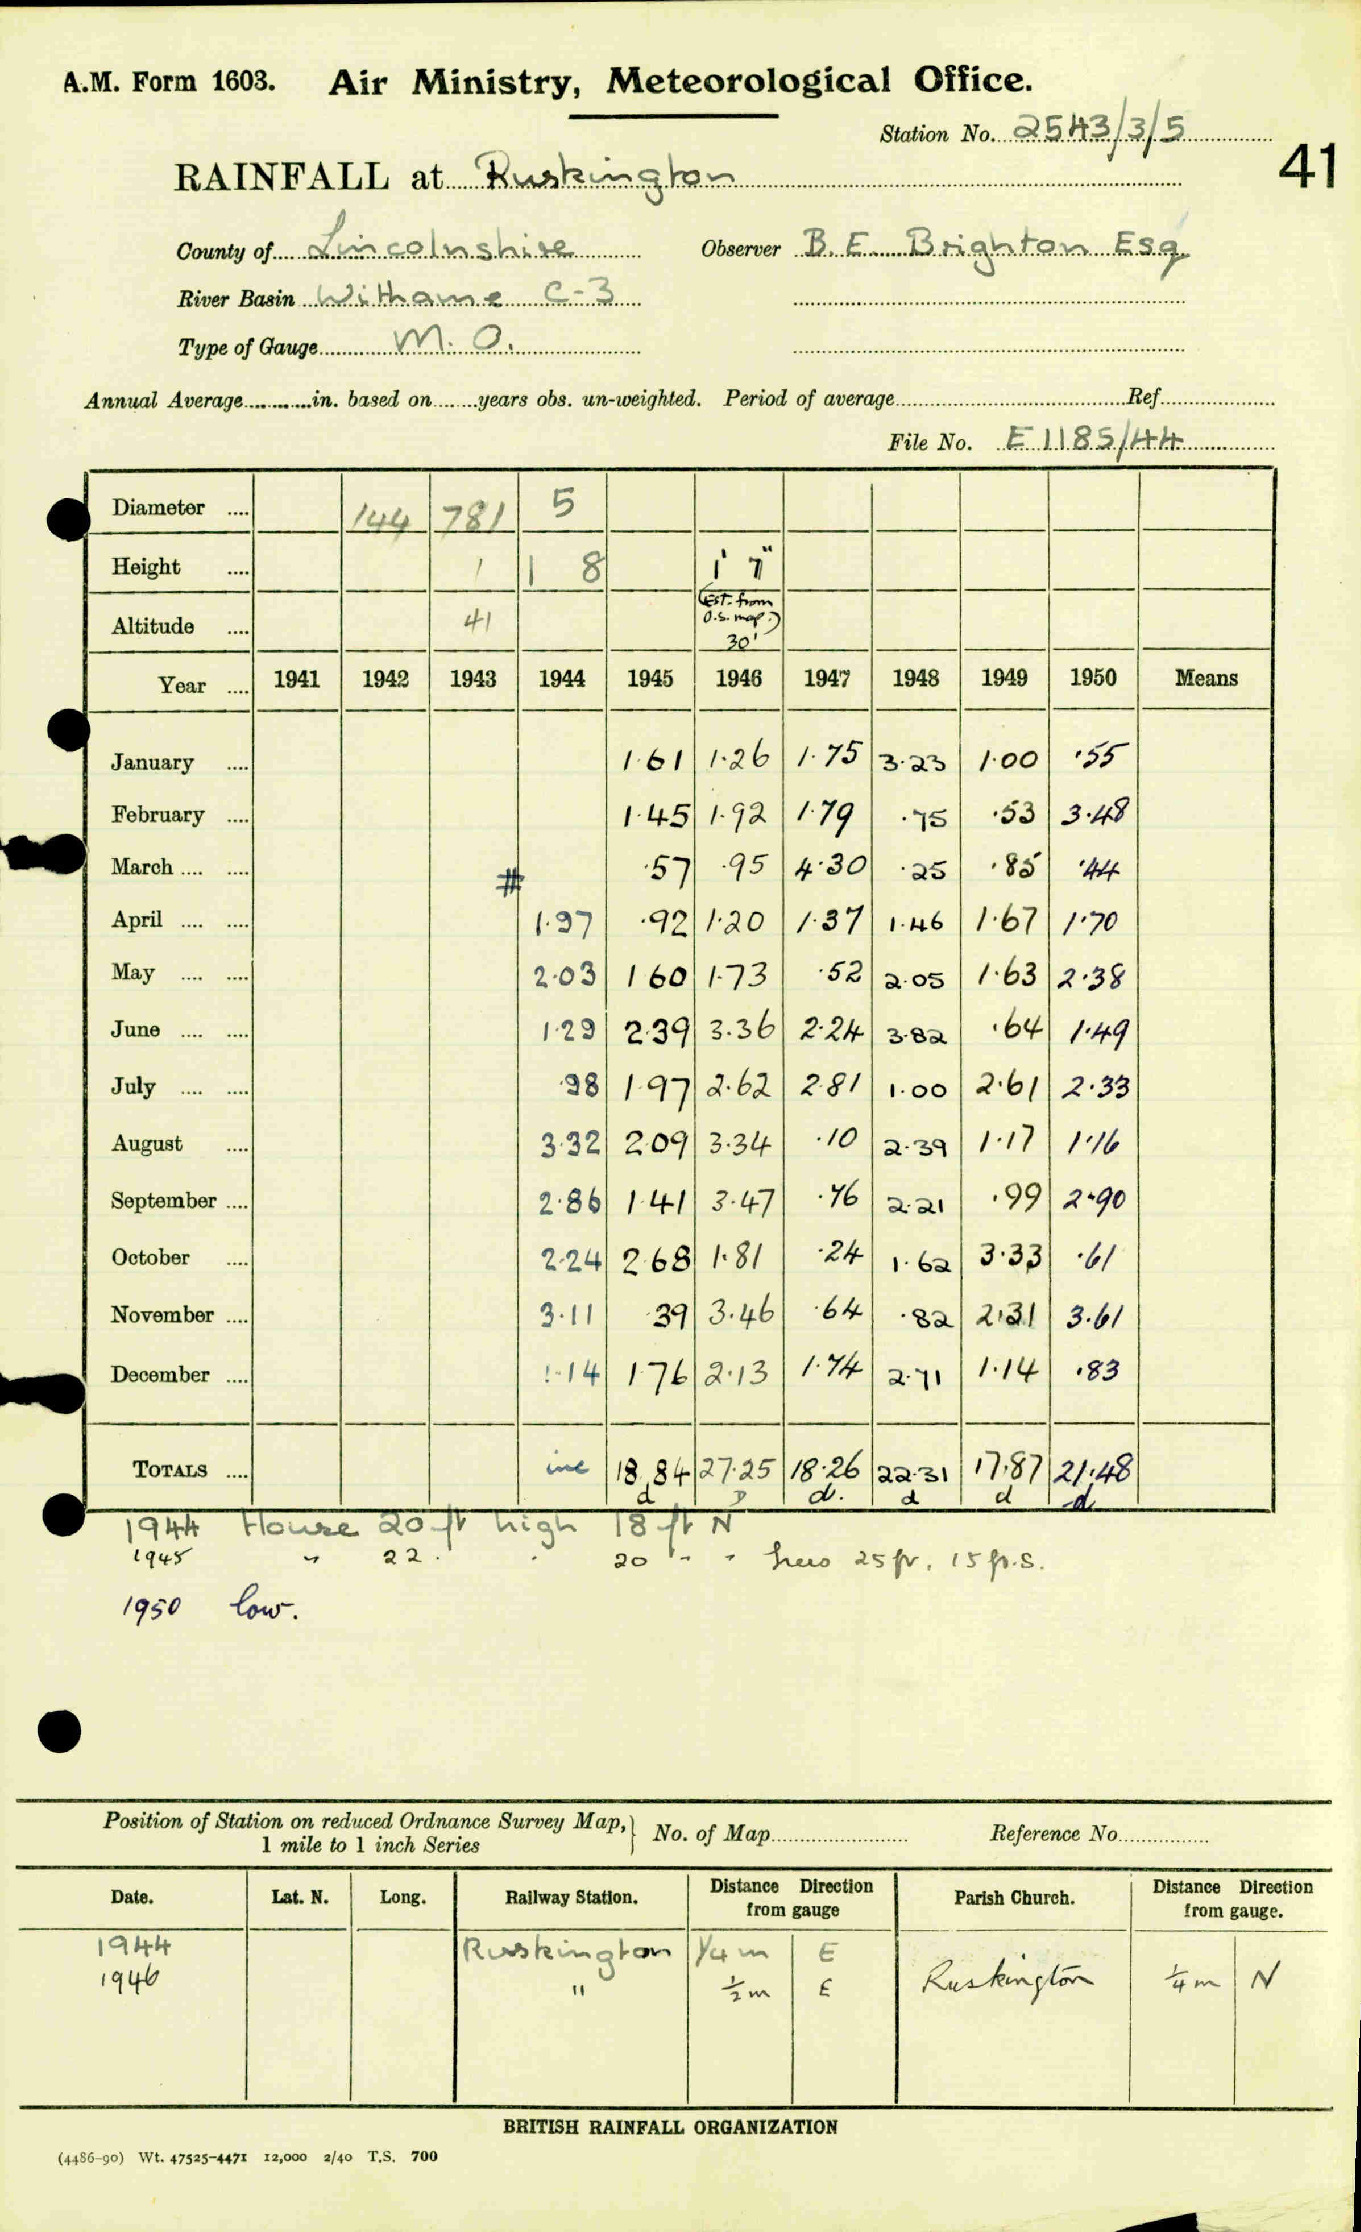 A.M. Form 1603. Air Ministry, Meteorological Office.
Station No. 2543/3/5
41
RAINFALL at Ruskington
County of Lincolnshire Observer B.E. Brighton Esq
River Basin Withame C-3
Type of Gauge M.O.
Annual Average in. based on years obs. un-weighted. Period of average Ref
File No. E1185/44
Diameter 144 781 5
Height 1 1 8 1' 7"
Altitude 41 (Est. from O.S. map.) 30'
Year 1941 1942 1943 1944 1945 1946 1947 1948 1949 1950 Means
January 1.61 1.26 1.75 3.23 1.00 .55
February 1.45 1.92 1.79 .75 .53 3.48
March # .57 .95 4.30 .25 .85 .44
April 1.97 .92 1.20 1.37 1.46 1.67 1.70
May 2.03 1 60 1.73 .52 2.05 1.63 2.38
June 1.29 2.39 3.36 2.24 3.82 .64 1.49
July .98 1.97 2.62 2.81 1.00 2.61 2.33
August 3.32 2.09 3.34 .10 2.39 1.17 1.16
September 2.86 1.41 3.47 .76 2.21 .99 2.90
October 2.24 2.68 1.81 .24 1.62 3.33 .61
November 3.11 .39 3.46 .64 .82 2.31 3.61
December 1.14 1.76 2.13 1.74 2.71 1.14 .83
TOTALS inc 18.84 27.25 18.26 22.31 17.87 21.48
d D d. d d d
1944 House 20 ft high 18 ft N
1945 " 22 " 20 " " 25 fr. 15 fr. S.
1950 low.
Position of Station on reduced Ordnance Survey Map, 1 mile to 1 inch Series } No. of Map Reference No.
Date. Lat. N. Long. Railway Station. Distance Direction from gauge Parish Church. Distance Direction from gauge.
1944 Ruskington 1/4 m E
1946 " 1/2 m E Ruskington 1/4 m N
BRITISH RAINFALL ORGANIZATION
(4486-90) Wt. 47525-4471 12,000 2/40 T.S. 700